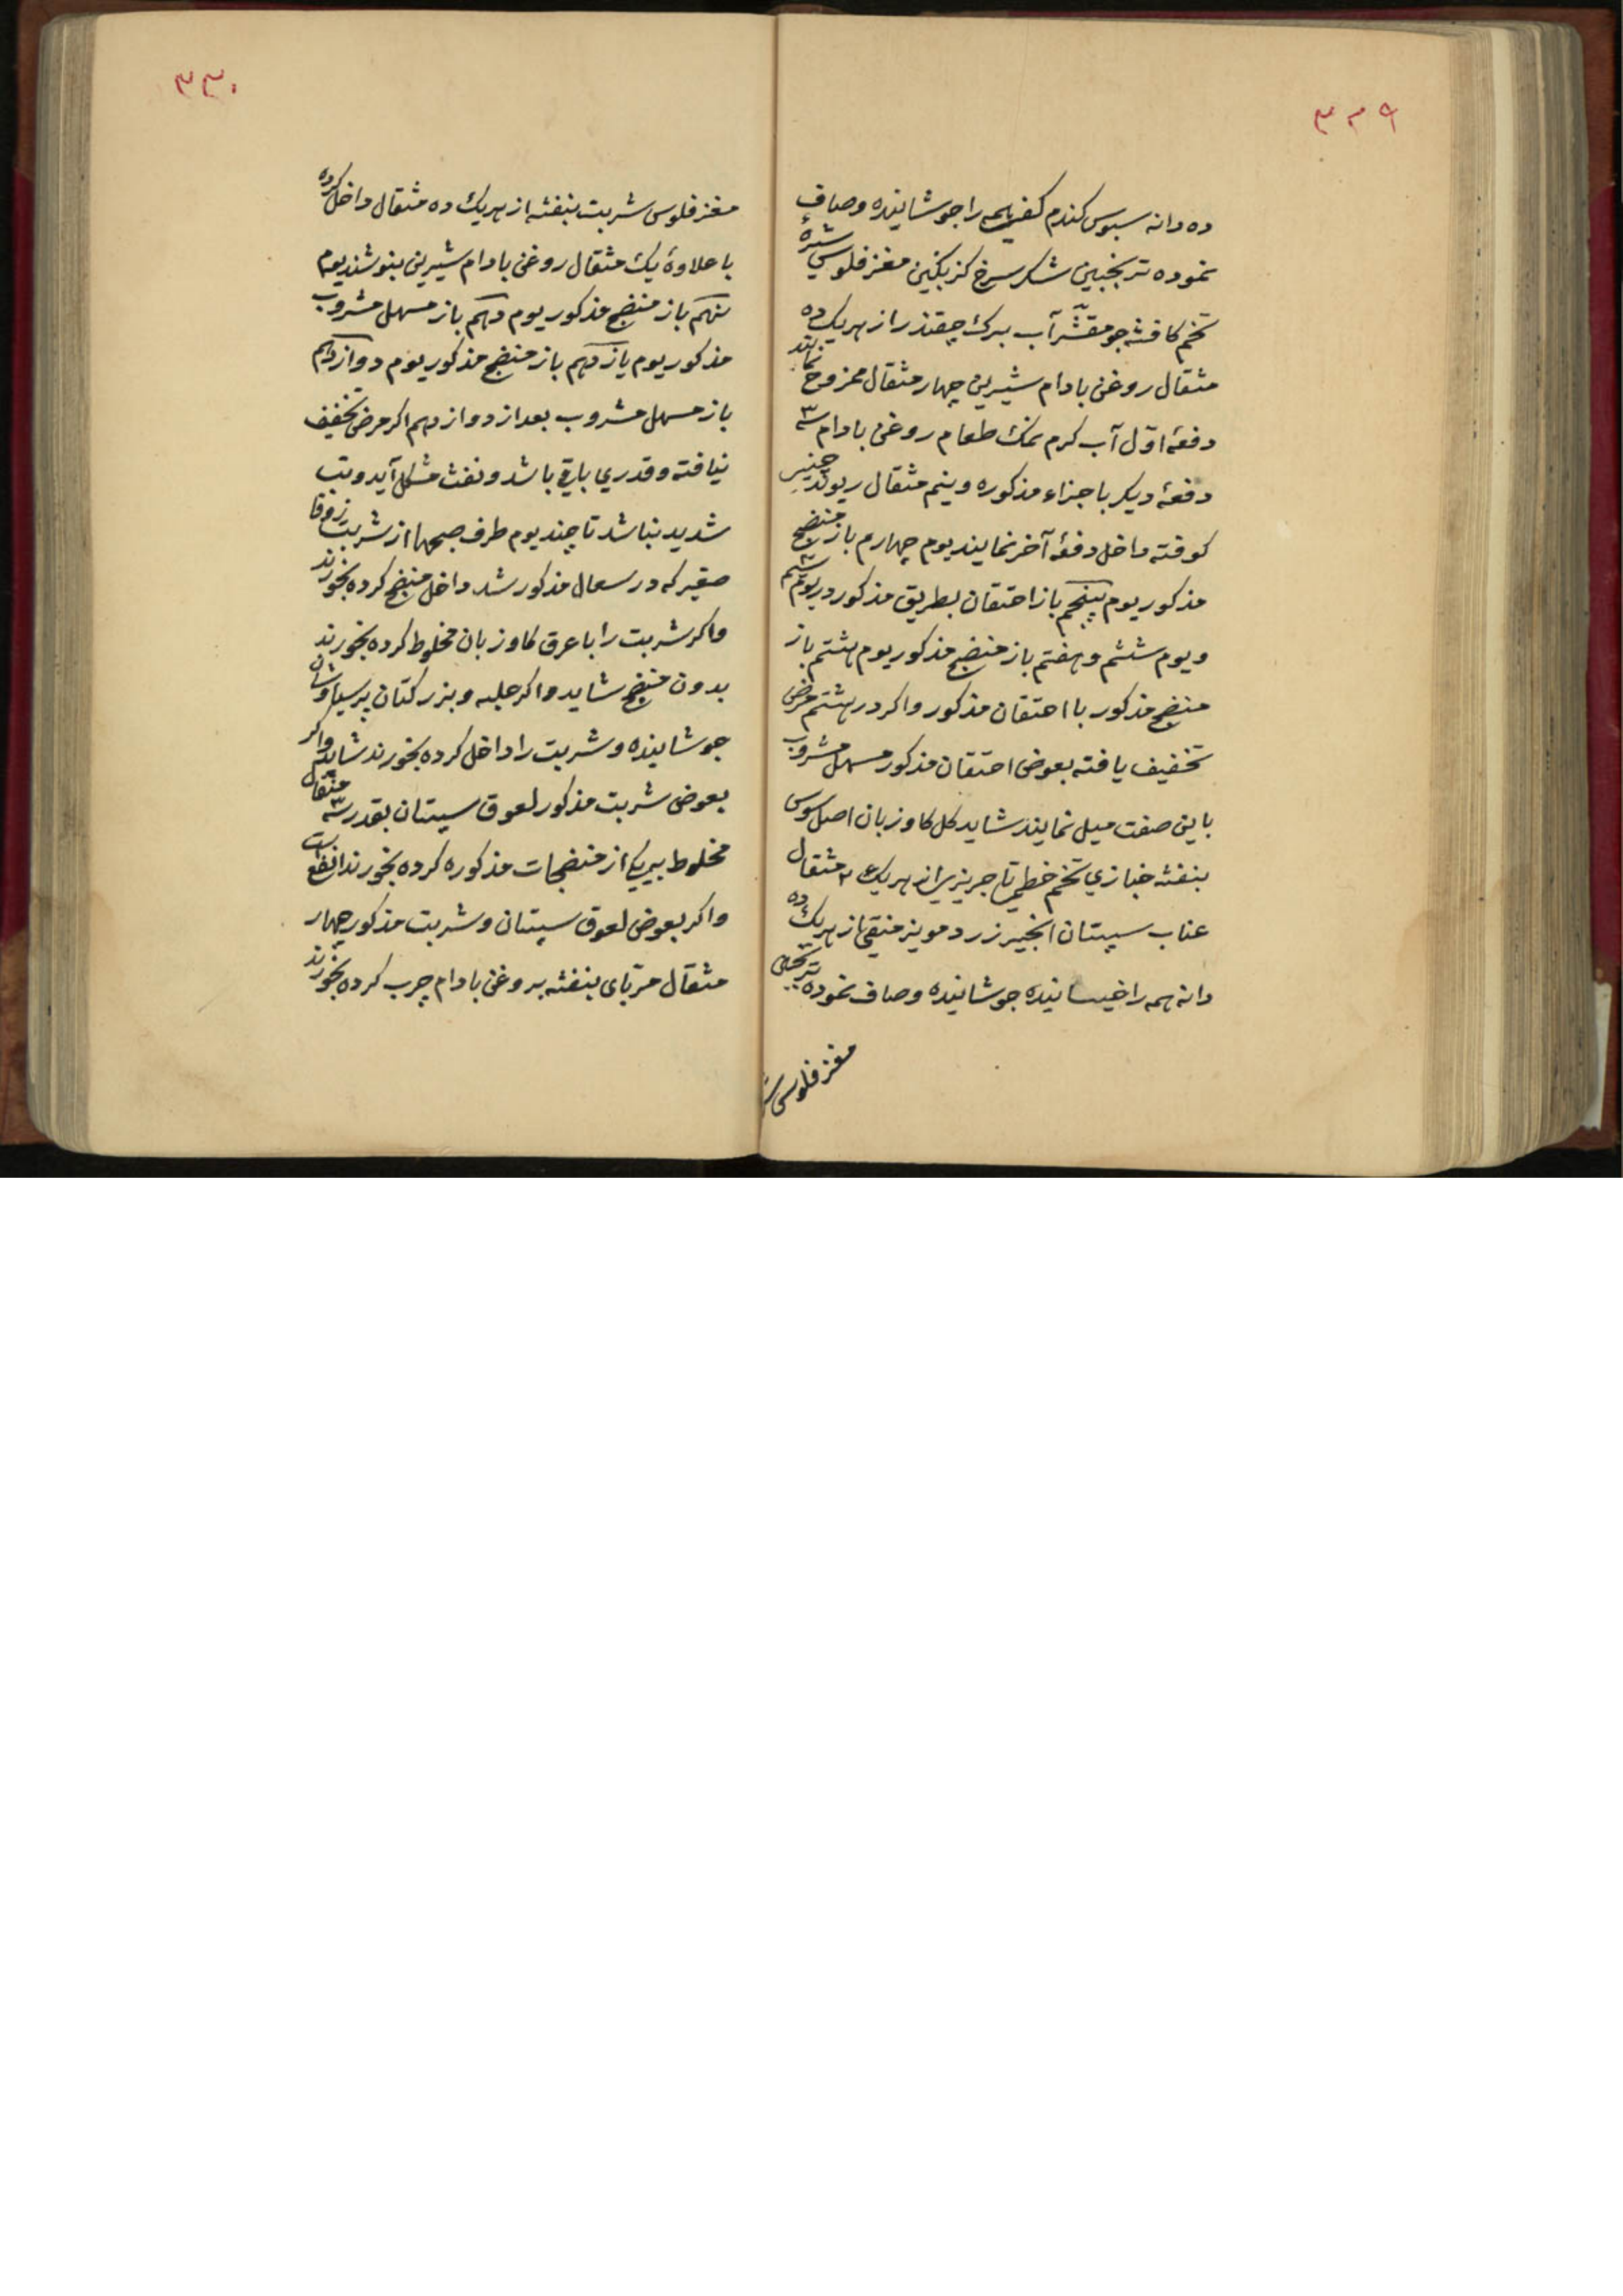 ۳۲۹
ده دانه سبوس کندم کفی همه را جوشانیده وصاف
نموده ترنجبین شکر سرخ کزنکبین مغز فلوس شیرهٔ
تخم کافشه جو مقشّر آب برک چقندر از هریک ده
مثقال روغن بادام شیرین چهار مثقال ممزوج نمایند
دفعهٔ اوّل آب کرم نمک طعام روغن بادام سه
دفعهٔ دیکر باجزاء مذکوره ونیم مثقال ریوند چینی
کوفته داخل دفعهٔ آخر نمایند یوم چهارم باز منضج
مذکور یوم پنجم باز احتقان بطریق مذکور در یوم سیم
ویوم ششم وهفتم باز منضج مذکور یوم هشتم باز
منضج مذکور با احتقان مذکور واکر در هشتم مرض
تخفیف یافته بعوض احتقان مذکور مسهل مشروب
باین صفت میل نمایند شاید کل کاوزبان اصل سوس
بنفشه خبازی تخم خطمی تاجریزی از هریک ۲ مثقال
عناب سپستان انجیر زرد مویز منقی از هریک ده
دانه همه را خیسانیده جوشانیده وصاف نموده ترنجبین
مغز فلوس
۳۳۰
مغز فلوس شربت بنفشه از هریک ده مثقال داخل کرده
با علاوهٔ یک مثقال روغن بادام شیرین بنوشند یوم
نهم باز منضج مذکور یوم دهم باز مسهل مشروب
مذکور یوم یازدهم باز منضج مذکور یوم دوازدهم
باز مسهل مشروب بعد از دوازدهم اکر مرض تخفیف
نیافته وقدری باقی باشد ونفث مشکل آید وتب
شدید نباشد تا چند یوم طرف صبحها از شربت زوفا
صغیر که در سعال مذکور شد داخل منضج کرده بخورند
واکر شربت را با عرق کاوزبان مخلوط کرده بخورند
بدون منضج شاید واکر حلبه وبزر کتان پرسیاوشان
جوشانیده وشربت را داخل کرده بخورند شاید واکر
بعوض شربت مذکور لعوق سپستان بقدر سه مثقال
مخلوط بیکی از منضجات مذکوره کرده بخورند انفع است
واکر بعوض لعوق سپستان وشربت مذکور چهار
مثقال مربّای بنفشه بروغن بادام چرب کرده بخورند